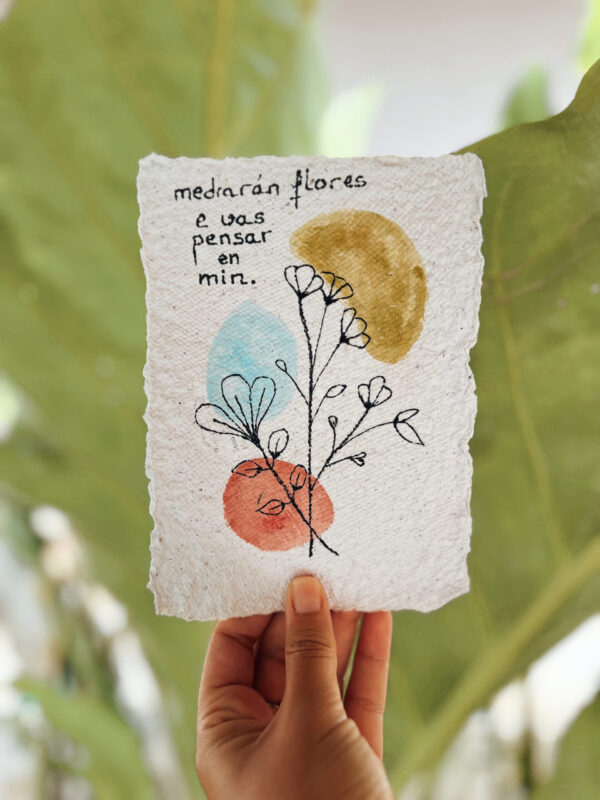 medrarán flores
e vas
pensar
en
min.